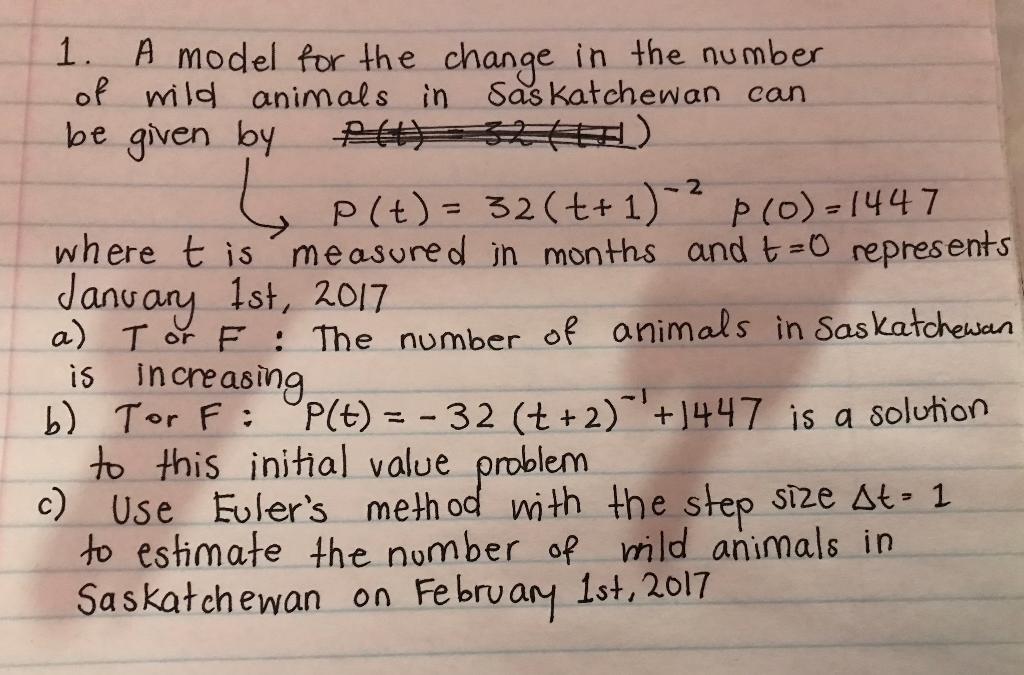 1. A model for the change in the number
of wild animals in Saskatchewan can
be given by P(t) = 32(t+1)
P(t) = 32(t+1)⁻² P(0)=1447
where t is measured in months and t=0 represents
January 1st, 2017
a) T or F : The number of animals in Saskatchewan
is increasing
b) T or F : P(t) = -32 (t+2)⁻¹+1447 is a solution
to this initial value problem
c) Use Euler's method with the step size Δt = 1
to estimate the number of wild animals in
Saskatchewan on February 1st, 2017